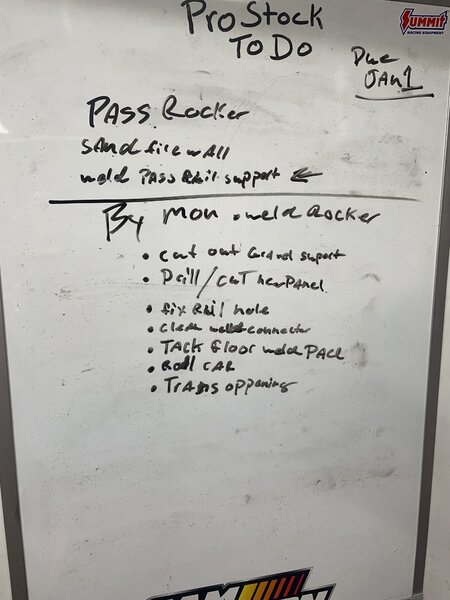 Pro Stock
To Do
SUMMIT
RACING EQUIPMENT
Due
JAN 1
PASS Rocker
sand firewall
weld PASS Rail support
By Mon . weld Rocker
• cut out Grand support
• Drill/cut new Panel
• fix Rail hole
• clean weld connector
• TACK floor weld PACC
• Roll CAR
• Trans oppaning